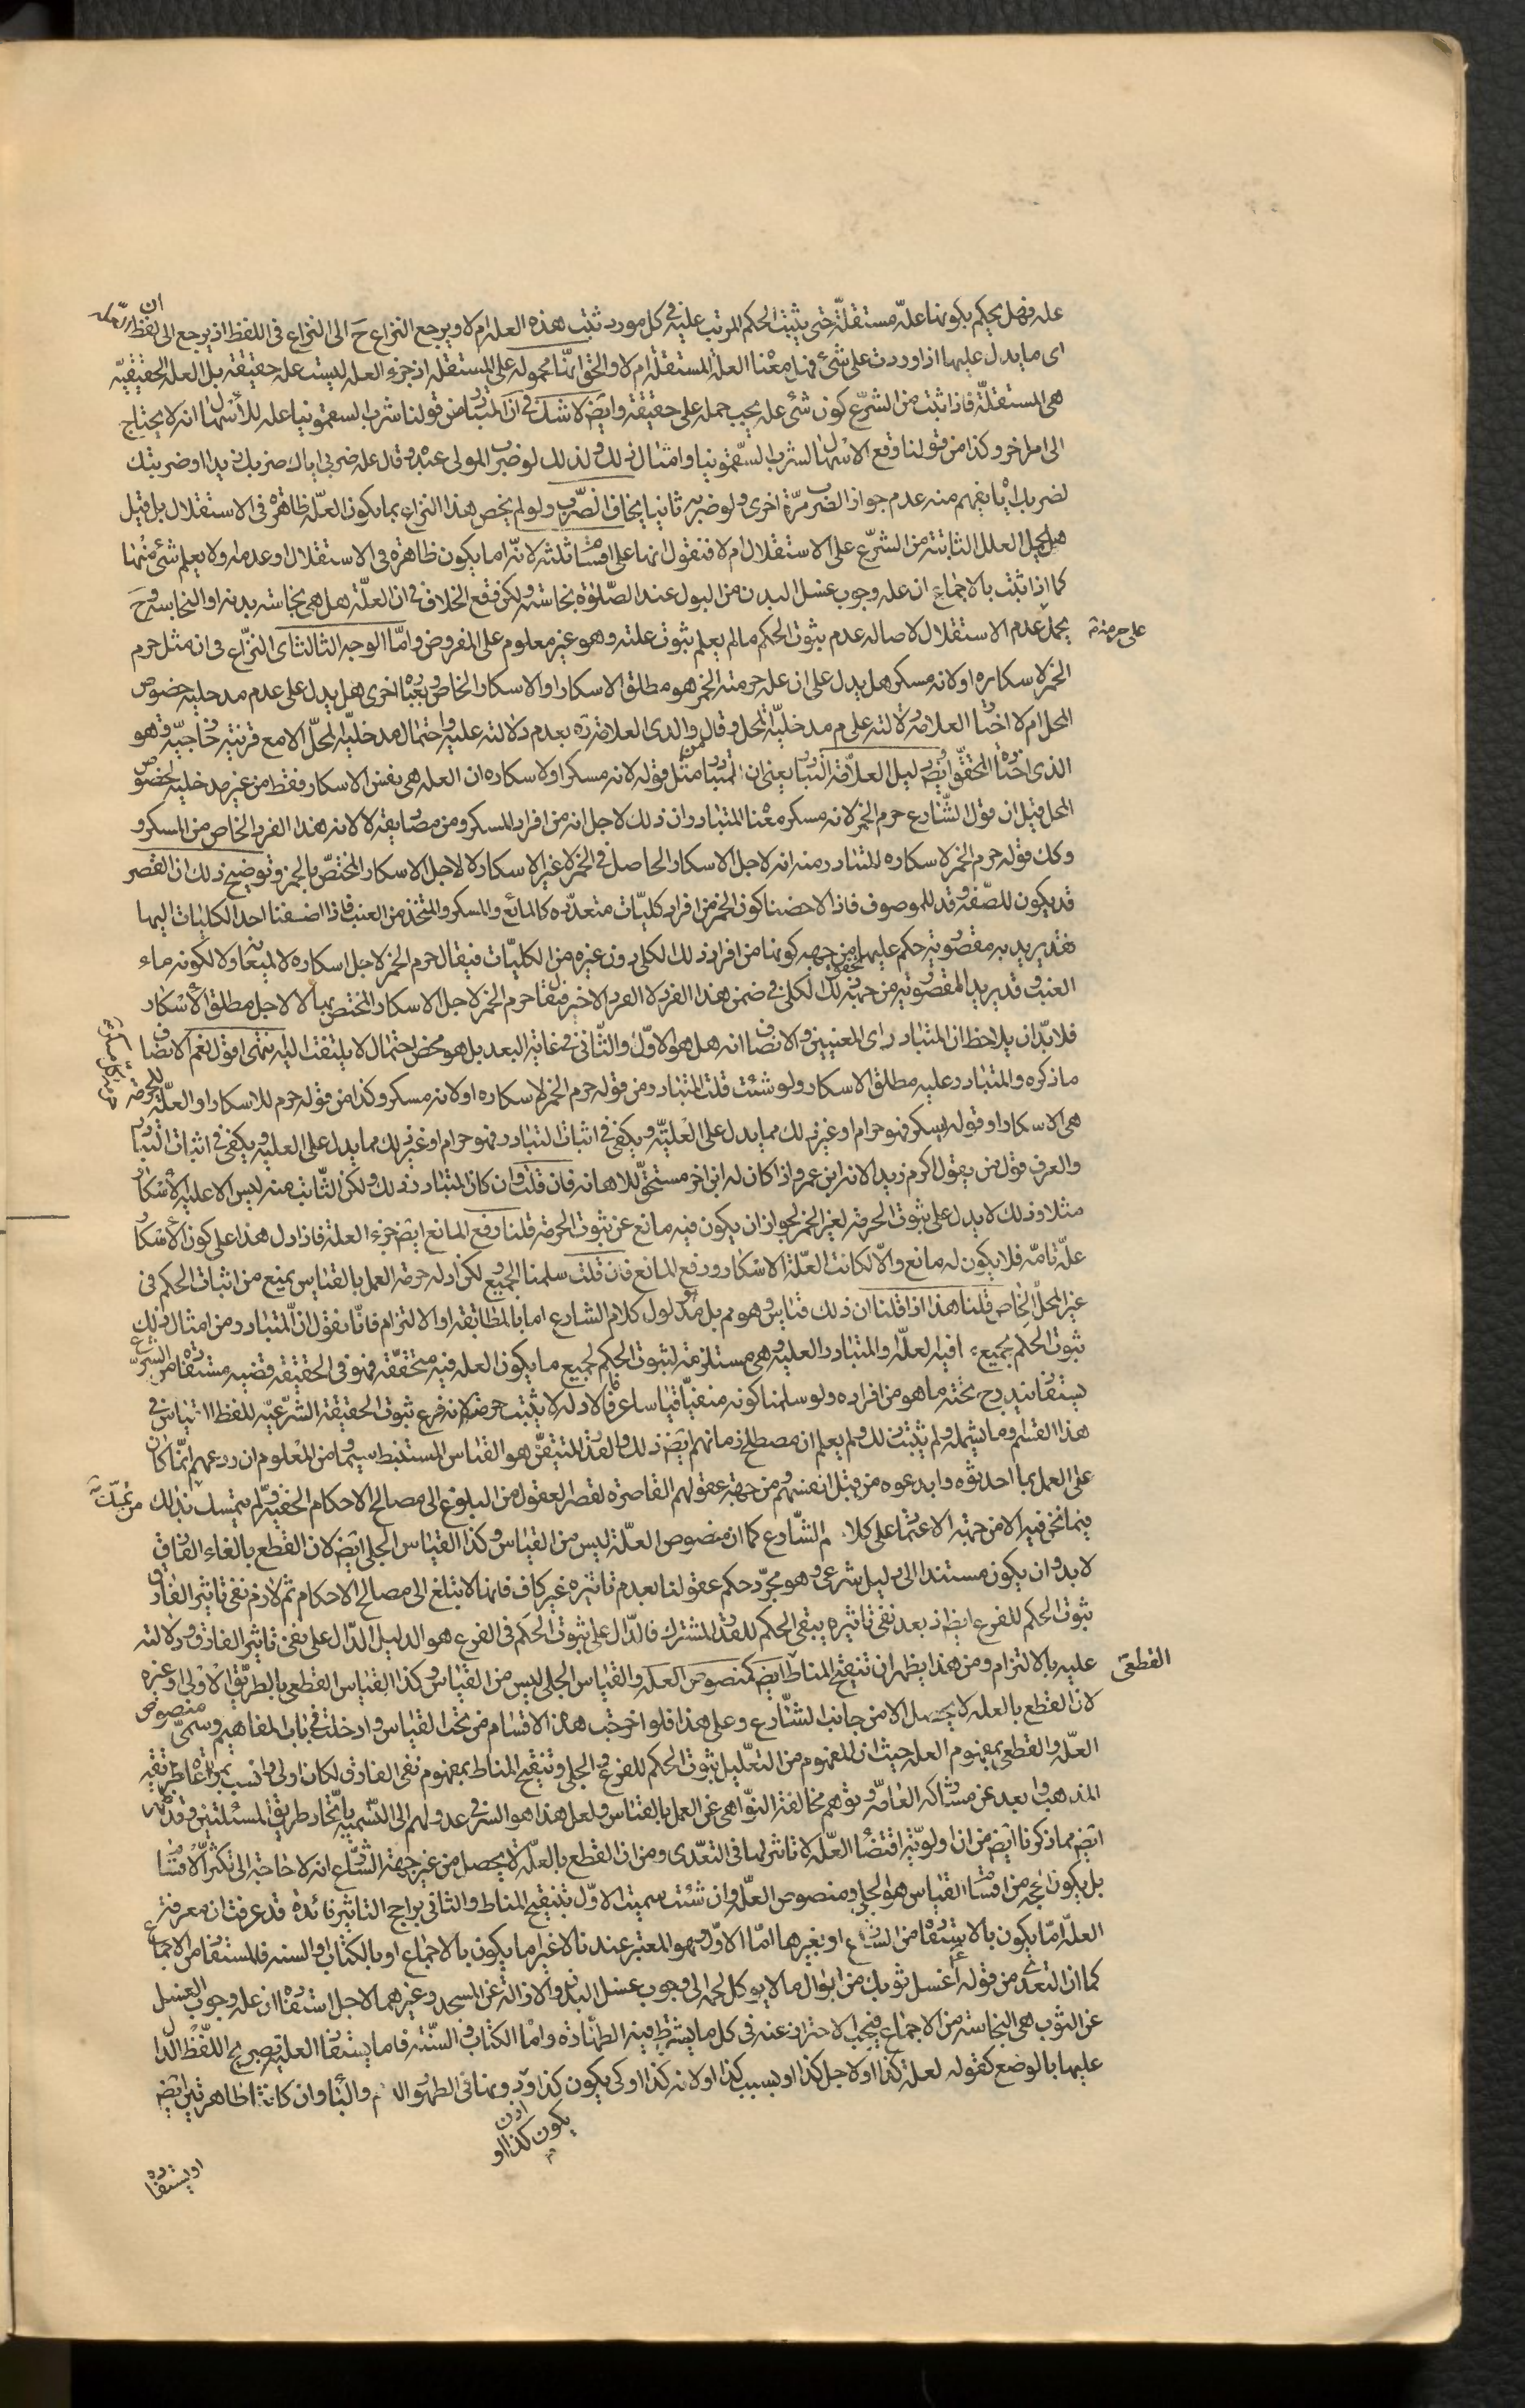 علة فهل يحكم بكونها علة مستقلة حتى يثبت الحكم المرتب عليه فى كل مورد ثبتت هذه العلة ام لا ويرجع النزاع ح الى النزاع فى اللفظ اذ يرجع الى ان لفظ العلة
اى ما يدل عليها اذا وردت على شئ فهل معناه العلة المستقلة ام لا والحق انها محمولة على المستقلة اذ جزء العلة ليست علة حقيقة بل العلة الحقيقية
هى المستقلة فاذا ثبت من الشرع كون شئ علة يجب حمله على حقيقته وايض لا شك فى ان المتبادر من قولنا شرب السقمونيا علة للاسهال انه لا يحتاج
الى امر اخر وكذا من قولنا وقع الاسهال لشرب السقمونيا وامثال ذلك ولذلك لو ضرب المولى عبده وقال علة ضربى اياك ضربك زيدا او ضربتك
لضربك اياه يفهم منه عدم جواز الضرب مرة اخرى ولو ضربه ثانيا يخاف الضرب ولو لم يخص هذا النزاع بما يكون العلة ظاهرة فى الاستقلال بل قيل
هل يحمل العلل الثابتة من الشرع على الاستقلال ام لا فنقول انها على اقسام ثلثة لانه اما يكون ظاهرة فى الاستقلال او عدمه او لا يعلم شئ منهما
كما اذا ثبت بالاجماع ان علة وجوب غسل البدن من البول عند الصلوة نجاسته ولكن وقع الخلاف فى ان العلة هل هى نجاسة بدنه او النجاسة وح
يحمل عدم الاستقلال لاصالة عدم ثبوت الحكم ما لم يعلم ثبوت علته وهو غير معلوم على المفروض واما الوجه الثالث اى النزاع فى ان مثل حرم
على حرمته
الخمر لاسكاره او لانه مسكر هل يدل على ان علة حرمة الخمر هو مطلق الاسكار او الاسكار الخاص وبعبارة اخرى هل يدل على عدم مدخلية خصوص
المحل ام لا اختار العلامة دلالته على عدم مدخلية المحل وقال والدى العلامة ره بعدم دلالته عليه واحتمال مدخلية المحل الا مع قرينة خارجية وهو
الذى اختاره المحقق ايض دليل العلامة التبادر يعنى ان المتبادر من مثل قوله لانه مسكر او لاسكاره ان العلة هى نفس الاسكار فقط من غير مدخلية خصوص
المحل قيل ان قول الشارع حرم الخمر لانه مسكر معناه المتبادر ان ذلك لاجل انه من افراد المسكر ومن مصاديقه لا لانه هذا الفرد الخاص من المسكر و
وكك قوله حرم الخمر لاسكاره المتبادر منه انه لاجل الاسكار الحاصل فى الخمر لا غير الاسكار لا لاجل الاسكار المختص بالخمر وتوضيح ذلك ان القصر
قد يكون للصفة وقد للموصوف فاذا لاحضنا كون الخمر من افراد كليات متعددة كالمائع والمسكر والمتخذ من العنب فاذا اضفنا احد الكليات اليها
فقد يريد به مقصورية حكم عليها من جهة كونها من افراد ذلك الكلى دون غيره من الكليات فيقال حرم الخمر لاجل اسكاره لا لميعانه او لا لكونه ماء
العنب وقد يريد المقصورية من جهة تحقق ذلك الكلى فى ضمن هذا الفرد لا الفرد الاخر فيقال حرم الخمر لاجل الاسكار المختص بها لا لاجل مطلق الاسكار
فلا بد ان يلاحظ ان المتبادر اى المعنيين والانصاف انه هل هو الاول والثانى فى غاية البعد بل هو محض احتمال لا يلتفت اليه انتهى اقول نعم الانصاف
ما ذكره والمتبادر علية مطلق الاسكار ولو شئت قلت المتبادر من قوله حرم الخمر لاسكاره او لانه مسكر وكذا من قوله حرم للاسكار او العلة للحرمة
هى الاسكار او قوله يسكر فهو حرام او غير ذلك مما يدل على العلية ويكفى فى اثبات التبادر فهو حرام او غير ذلك مما يدل على العلية ويكفى فى اثبات التبادر
والعرف قول من يقول اكرم زيد الانه ابن عمرو اذا كان له ابن اخر مستحق للاهانة فان قلت وان كان المتبادر ذلك ولكن الثابت منه ليس الا علية الاسكار
مثلا وذلك لا يدل على ثبوت الحرمة لغير الخمر لجواز ان يكون فيه مانع عن ثبوت الحرمة قلنا رفع المانع ايض جزء العلة فاذا دل هذا على كون الاسكار
علة تامة فلا يكون له مانع والا لكانت العلة الاسكار ورفع المانع فان قلت سلمنا الجميع لكن ادلة حرمة العمل بالقياس يمنع من اثبات الحكم فى
غير المحل الخاص قلنا هذا اذا قلنا ان ذلك قياس وهو مم بل هو مدلول كلام الشارع اما بالمطابقة او الالتزام فانا نقول ان المتبادر من امثال ذلك
ثبوت الحكم بجميع ما فيه العلة والمتبادر العلية وهى مستلزمة لثبوت الحكم لجميع ما يكون العلة فيه متحققة فهو فى الحقيقة قضية مستفادة من الشرع
يستفاد يندرج تحته ما هو من افراده ولو سلمنا كونه منفيا قياسا عرفا فالادلة لا يثبت حرمته لانه فرع ثبوت الحقيقة الشرعية للفظ القياس فى
هذا القسم وما يشمله ولم يثبت ذلك ولم يعلم ان مصطلح زمانهم ايض ذلك والقدر المتيقن هو القياس المستنبط سيما ومن المعلوم ان ردعهم انما كان
على العمل بما احدثوه وابدعوه من قبل انفسهم ومن جهة عقولهم القاصرة لقصر العقول من البلوغ الى مصالح الاحكام الخفية ولم يتمسك بذلك
فيما نحن فيه الا من جهة الاعتماد على كلام الشارع كما ان منصوص العلة ليس من القياس وكذا القياس الجلى ايض لان القطع بالغاء الفارق
لا بد وان يكون مستندا الى دليل شرعى وهو مجرد حكم عقولنا بعدم تاثيره غير كاف فانها لا تبلغ الى مصالح الاحكام ثم لازم نفى تاثير الفارق
ثبوت الحكم للفرع ايض اذ بعد نفى تاثيره يبقى الحكم للقدر المشترك فالدال على ثبوت الحكم فى الفرع هو الدليل الدال على نفى تاثير الفارق ودلالته
عليه بالالتزام ومن هذا يظهر ان تنقيح المناط ايض كمنصوص العلة والقياس الجلى ليس من القياس وكذا القياس القطعى بالطريق الاولى وغيره
القطعى
لان القطع بالعلة لا يحصل الا من جانب الشارع وعلى هذا فلو اخرجت هذه الاقسام من تحت القياس وادخلت فى باب المفاهيم وسمى منصوص
العلة والقطعى بمفهوم العلة حيث ان المفهوم من التعليل ثبوت الحكم للفرع والجلى وتنقيح المناط بمفهوم نفى الفارق لكان اولى وانسب بمراعاة طريقة
المذهب وابعد عن مشاركة العامة وتوهم مخالفة النواهى عن العمل بالقياس ولعل هذا هو السر فى عدولهم الى التسمية باتحاد طريق المسئلتين وقد ظهر
ايض مما ذكرنا ايض من ان اولوية اقتضاء العلة لا تاثير لها فى التعدى ومن ان القطع بالعلة لا يحصل من غير جهة الشارع انه لا حاجة الى تكثير الاقسام
بل يكون الحجة من اقسام القياس هو الجلى ومنصوص العلة وان شئت سميت الاول بتنقيح المناط والثانى براجح التاثير فائدة قد عرفت ان معرفة
العلة اما يكون بالاستفادة من الشارع او بغيرها اما الاول وهو المعتبر عندنا لا غير اما يكون بالاجماع او بالكتاب او السنة فالمستفاد من الاجماع
كما ان التعدى من قوله ع اغسل ثوبك من ابوال ما لا يوكل لحمه الى وجوب غسل البدن والازالة عن المسجد وغيرهما لاجل استفادة ان علة وجوب الغسل
عن الثوب هى النجاسة من الاجماع فيجب الاحتراز عنه فى كل ما يشترط فيه الطهارة واما الكتاب والسنة فاما يستفاد العلية بصريح اللفظ الدال
عليها بالوضع كقوله لعلة كذا او لاجل كذا او بسبب كذا او لانه كذا او كى يكون كذا او اذن يكون كذا او
او يستفاد